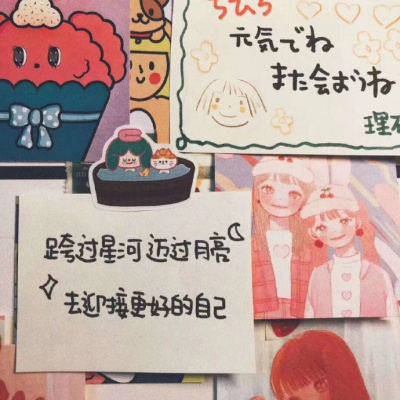 ちひろ
元気でね
また会おうね
理石
跨过星河迈过月亮
去迎接更好的自己